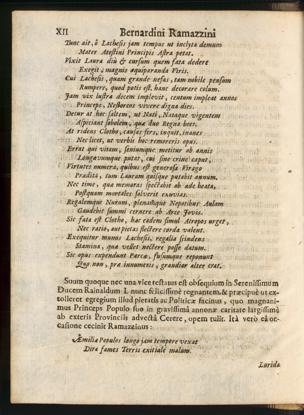 XII Bernardini Ramazzini
Tunc ait, ô Lachesis jam tempus ut inclyta demum
Mater Atestini Principis Astra petat.
Vixit Laura diù & cursum quem fata dedere
Exegit, magnis æquiparanda Viris.
Cui Lachesis, quam grande nefas, tam nobile pensum
Rumpere, quod potis est, hanc decorare colum.
Jam vix lustra decem implevit, centum impleat annos
Princeps, Nestoreos vivere digna dies.
Detur at hoc saltem, ut Nati, Nataque vigentem
Aspiciant sobolem, quæ duo Regna beet.
At ridens Clotho, causas fers, inquit, inanes
Nec licet, ut verbis hoc remoreris opus.
Erras qui vitam, seniumque metitur ab annis
Longævumque putat, cui sine crine caput,
Virtutes numera, quibus est generosa Virago
Prædita, tum Lauram quisque putabit annum.
Nec time, quæ memoras spectabit ab æde beata,
Postquam mortales solverit exuvias.
Regalemque Nurum, plenasque Nepotibus Aulam
Gaudebit summi cernere ab Arce Jovis.
Sic fata est Clotho, hac eadem simul Atropos urget,
Nec ratio, aut pietas flectere corda valent.
Exequitur munus Lachesis, regalia scindens
Stamina, qua vellet nectere posse datum.
Sic opus expendunt Parcæ, fusumque reponunt
Quo non, præ innumeris, grandior alter erat.
Suum quoque nec una vice testatus est obsequium in Serenissimum
Ducem Rainaldum I. nunc felicissimè regnantem, & præcipuè ut ex-
tolleret egregium illud pietatis ac Politicæ facinus, quo magnani-
mus Princeps Populo suo in gravissimâ annonæ caritate largissimâ
ab exteris Provinciis advectâ Cerere, opem tulit. Ità verò eâ oc-
casione cecinit Ramazzinus:
Æmiliæ Populos longo jam tempore vexat
Dira fames Terris exitiale malum.
Lurida